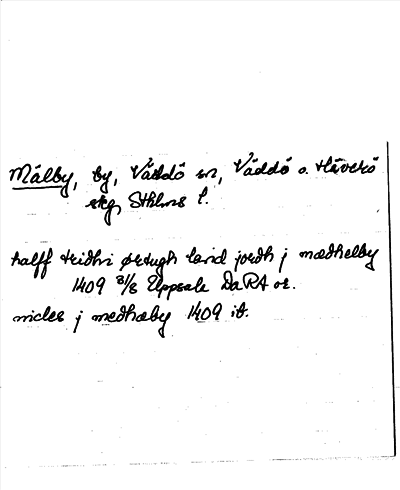 Målby, by, Väddö sn, Väddö o. Häverö
skg, Sthlms l.
halff tridhi ørtugh land jordh j mædhelby
1409 31/8 Uppsala DaRA or.
nicles j medhæby 1409 ib.